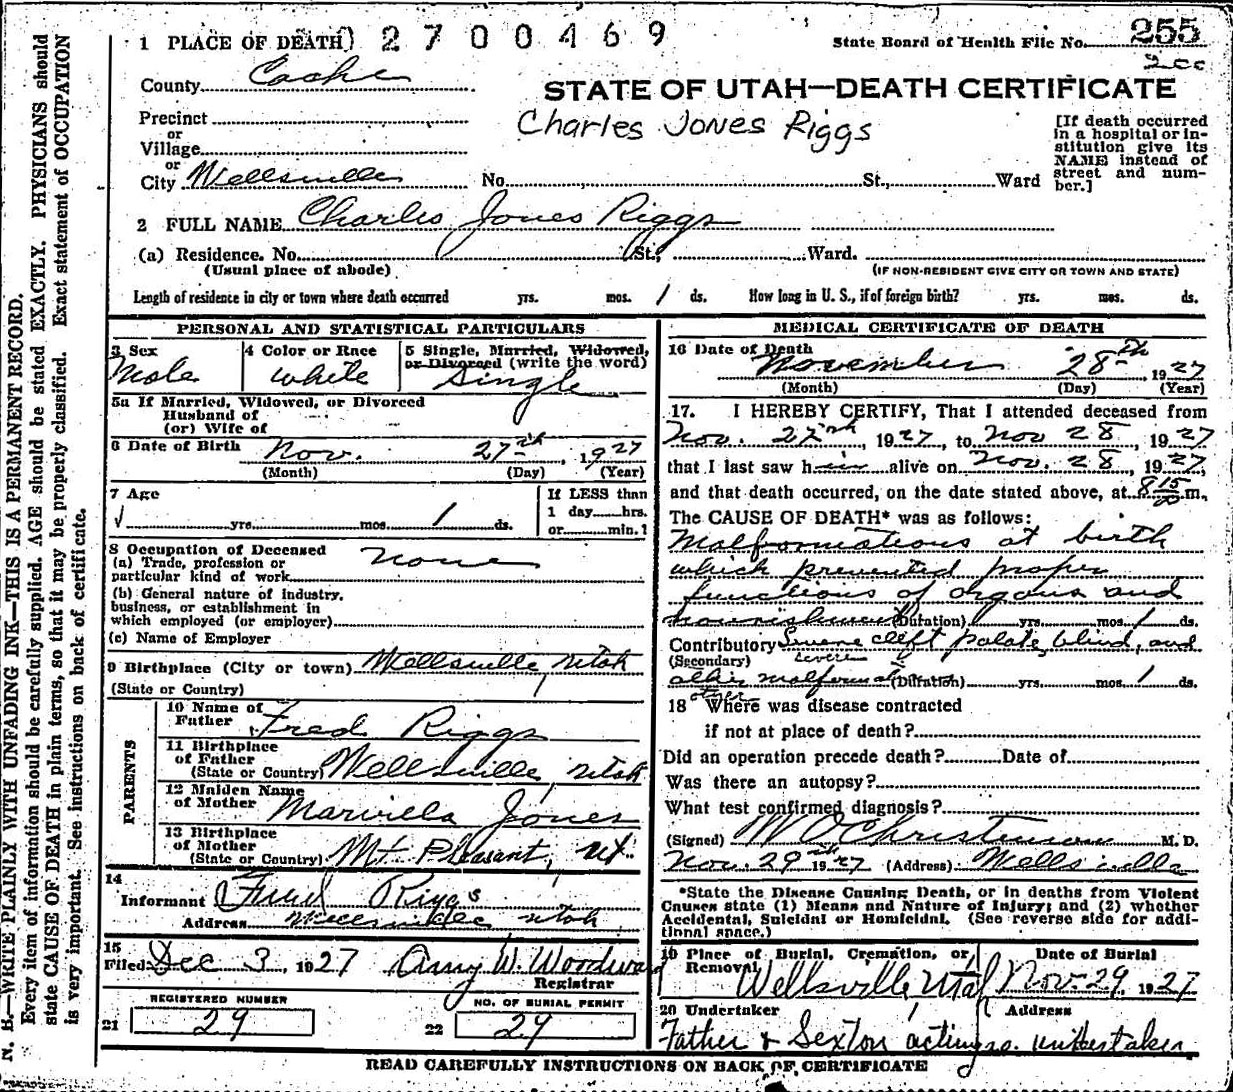 1 PLACE OF DEATH) 2700469 State Board of Health File No. 255
2cc
County Cache STATE OF UTAH—DEATH CERTIFICATE
Charles Jones Riggs
Precinct
or
Village
or
City Wellsville No. St., Ward
[If death occurred
in a hospital or in-
stitution give its
NAME instead of
street and num-
ber.]
2 FULL NAME Charles Jones Riggs
(a) Residence. No. St., Ward.
(Usual place of abode) (IF NON-RESIDENT GIVE CITY OR TOWN AND STATE)
Length of residence in city or town where death occurred yrs. mos. 1 ds. How long in U. S., if of foreign birth? yrs. mos. ds.
PERSONAL AND STATISTICAL PARTICULARS
3 Sex
Male
4 Color or Race
White
5 Single, Married, Widowed,
or Divorced (write the word)
Single
5a If Married, Widowed, or Divorced
Husband of
(or) Wife of
6 Date of Birth Nov. 27th, 1927
(Month) (Day) (Year)
7 Age
yrs. mos. 1 ds.
If LESS than
1 day hrs.
or min.1
8 Occupation of Deceased
(a) Trade, profession or
particular kind of work
none
(b) General nature of industry,
business, or establishment in
which employed (or employer)
(c) Name of Employer
9 Birthplace (City or town) Wellsville Utah
(State or Country)
PARENTS
10 Name of
Father Fred Riggs
11 Birthplace
of Father
(State or Country) Wellsville, Utah
12 Maiden Name
of Mother Marvilla Jones
13 Birthplace
of Mother
(State or Country) Mt Pleasant, Ut.
14
Informant Fred Riggs
Address Wellsville Utah
15
Filed Dec 3, 1927 Amy W. Woodward
Registrar
REGISTERED NUMBER
21 29
NO. OF BURIAL PERMIT
22 29
MEDICAL CERTIFICATE OF DEATH
16 Date of Death
November 28th 1927
(Month) (Day) (Year)
17. I HEREBY CERTIFY, That I attended deceased from
Nov. 27th, 1927, to Nov 28, 1927
that I last saw him alive on Nov. 28, 1927,
and that death occurred, on the date stated above, at 8 15 m.
The CAUSE OF DEATH* was as follows:
Malformations at birth
which prevented proper
functions of organs and
nourishment (Duration) yrs. mos. 1 ds.
Contributory Severe cleft palate, blind, and
(Secondary) severe
other malformat. (Duration) yrs. mos. 1 ds.
other
18 Where was disease contracted
if not at place of death?
Did an operation precede death? Date of
Was there an autopsy?
What test confirmed diagnosis?
(Signed) W O Christensen M. D.
Nov. 29th 1927 (Address) Wellsville
*State the Disease Causing Death, or in deaths from Violent
Causes state (1) Means and Nature of Injury; and (2) whether
Accidental, Suicidal or Homicidal. (See reverse side for addi-
tional space.)
19 Place of Burial, Cremation, or Removal
Wellsville Utah
Date of Burial
Nov. 29 1927
20 Undertaker Address
Father & Sexton acting as undertaker
READ CAREFULLY INSTRUCTIONS ON BACK OF CERTIFICATE
N. B.—WRITE PLAINLY WITH UNFADING INK—THIS IS A PERMANENT RECORD.
Every item of information should be carefully supplied. AGE should be stated EXACTLY. PHYSICIANS should
state CAUSE OF DEATH in plain terms, so that it may be properly classified. Exact statement of OCCUPATION
is very important. See instructions on back of certificate.